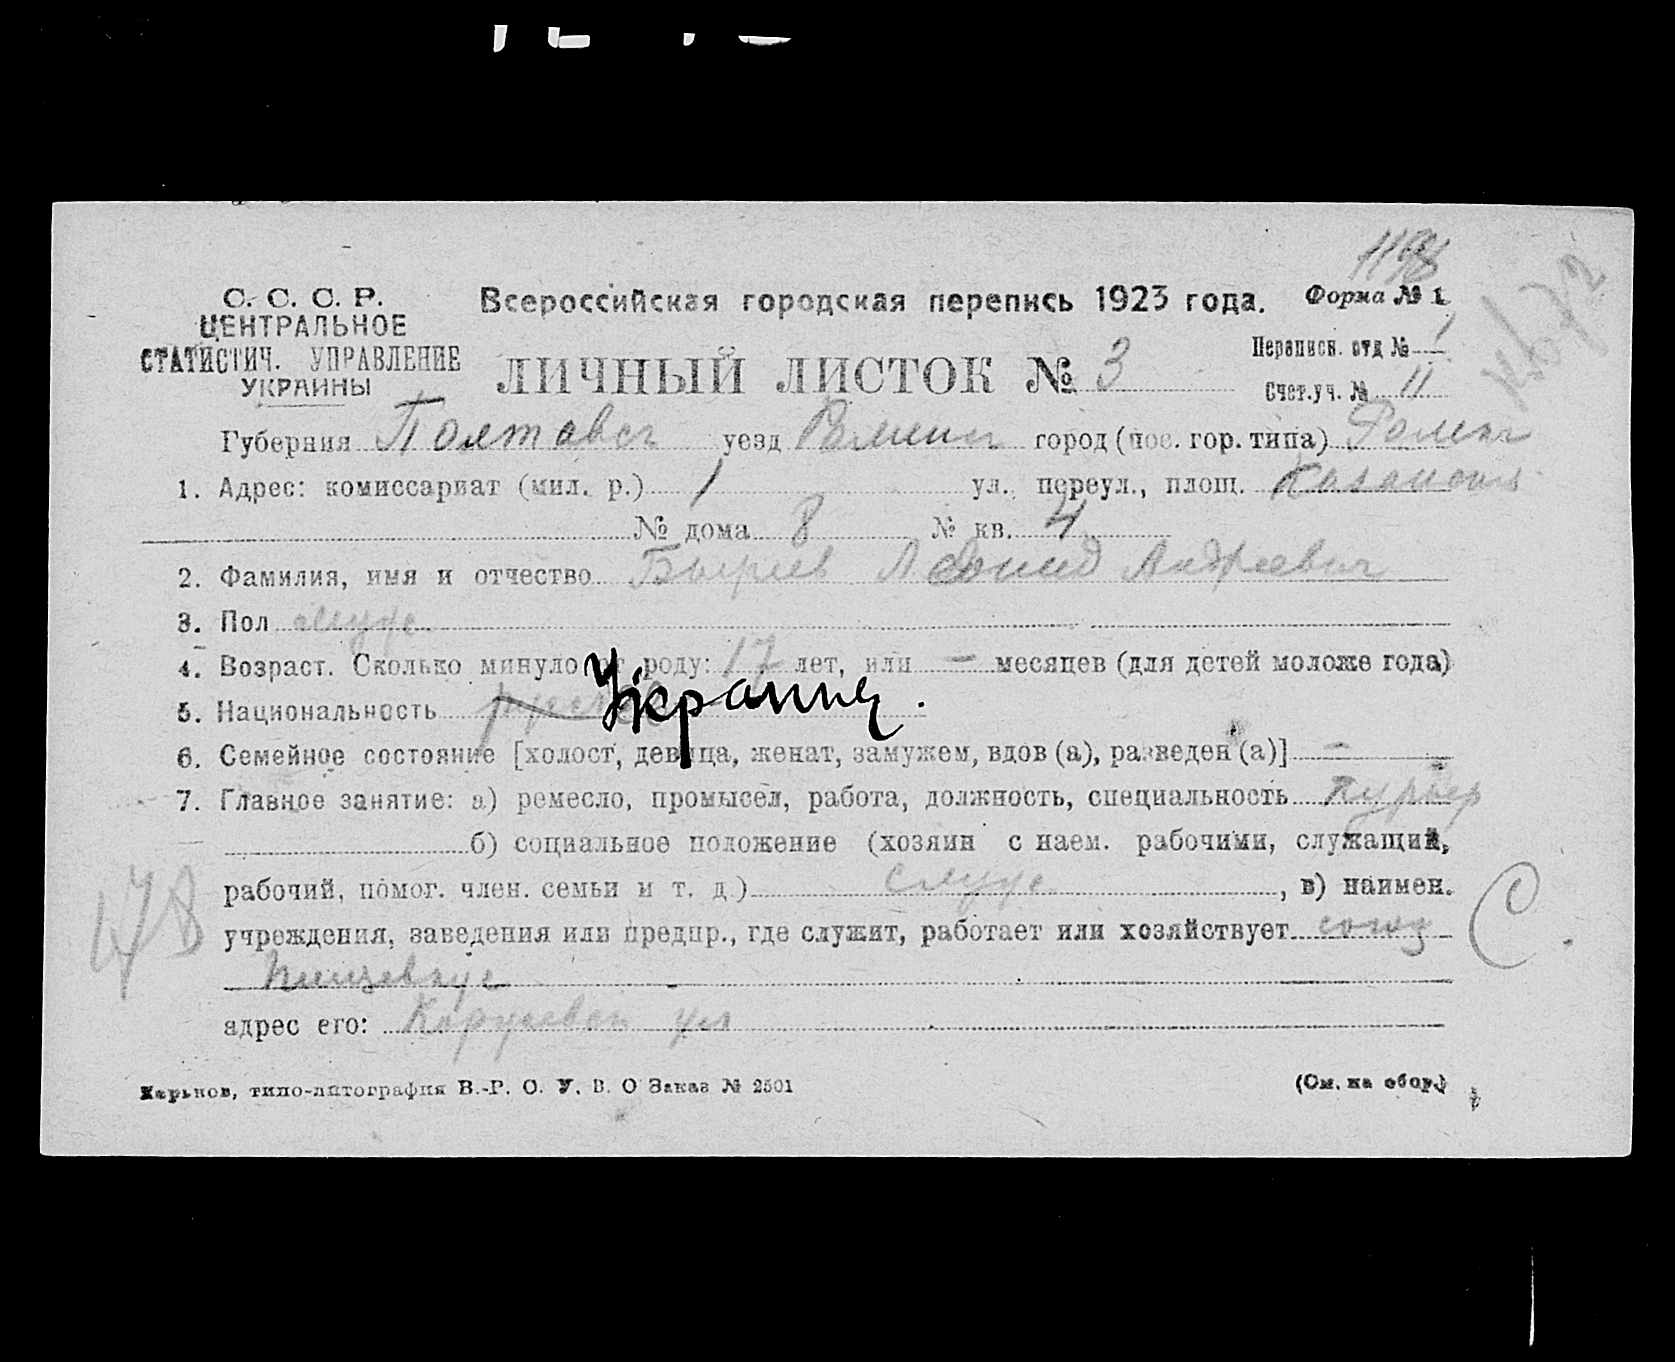 1198
С. С. С. Р.
ЦЕНТРАЛЬНОЕ
СТАТИСТИЧ. УПРАВЛЕНИЕ
УКРАИНЫ
Всероссийская городская перепись 1923 года.
Форма № 1.
ЛИЧНЫЙ ЛИСТОК № 3
Переписн. отд № 1
Счет.уч. № 11
Губерния Полтавск уезд Роменск город (пос. гор. типа) Ромен
1. Адрес: комиссариат (мил. р.) 1 ул., переул., площ. Казанская
№ дома 8 № кв. 4
2. Фамилия, имя и отчество Леонид Андреевич
3. Пол муж
4. Возраст. Сколько минуло от роду: 17 лет, или — месяцев (для детей моложе года)
5. Национальность Украинец.
6. Семейное состояние [холост, девица, женат, замужем, вдов (а), разведен (а)] —
7. Главное занятие: а) ремесло, промысел, работа, должность, специальность курьер
б) социальное положение (хозяин с наем. рабочими, служащий,
рабочий, помог. член. семьи и т. д.) служ , в) наимен.
учреждения, заведения или предпр., где служит, работает или хозяйствует союз
Пищевкус
адрес его: ул
478
С
Харьков, типо-литография В.-Р. О. У. В. О Заказ № 2501
(См. на обор.)